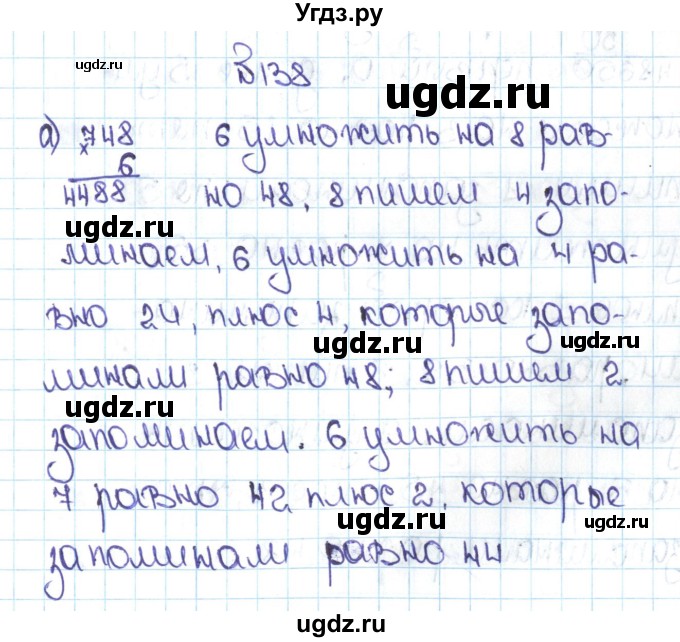 Угдз.ру
ugdz.ru
В 138
ugdz.ru
а) 748 6 умножить на 8 рав-
× 6
4488 но 48, 8 пишем 4 запо-
ugdz.ru
ugdz.ru
минаем, 6 умножить на 4 ра-
вно 24, плюс 4, которые запо-
ugdz.ru
минали равно 48; 8 пишем 2
ugdz.ru
запоминаем. 6 умножить на
7 равно 42 плюс 2, которые
ugdz.ru
ugdz.ru
запоминали равно 44
ugdz.ru